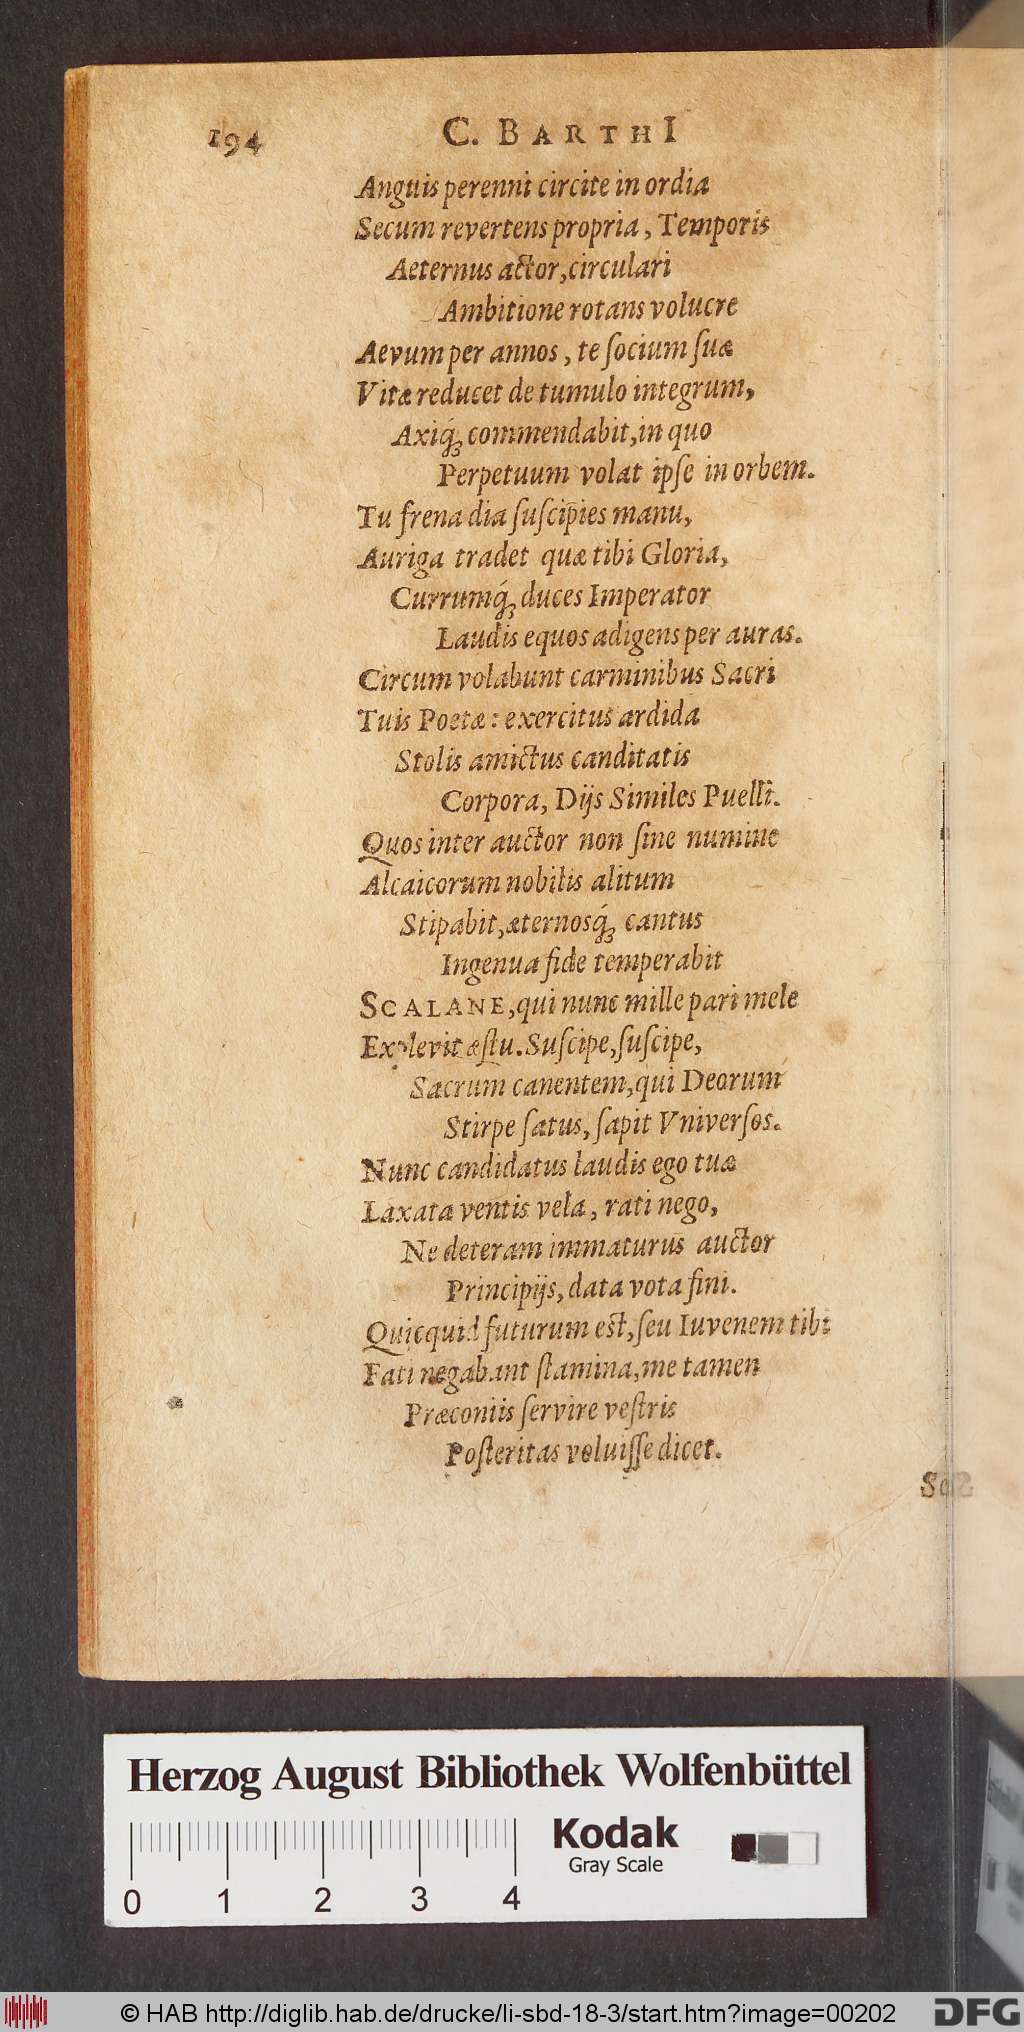 194 C. BARTHI
Anguis perenni circite in ordia
Secum revertens propria, Temporis
Aeternus actor, circulari
Ambitione rotans volucre
Aevum per annos, te ſocium ſuæ
Vitæ reducet de tumulo integrum,
Axiq́; commendabit, in quo
Perpetuum volat ipſe in orbem.
Tu frena dia ſuſcipies manu,
Auriga tradet quæ tibi Gloria,
Currumq́; duces Imperator
Laudis equos adigens per auras.
Circum volabunt carminibus Sacri
Tuis Poetæ: exercitus ardida
Stolis amictus canditatis
Corpora, Dijs Similes Puelli.
Quos inter auctor non ſine numine
Alcaicorum nobilis alitum
Stipabit, æternosq́; cantus
Ingenua fide temperabit
SCALANE, qui nunc mille pari mele
Explevit æſtu. Suſcipe, ſuſcipe,
Sacrum canentem, qui Deorum
Stirpe ſatus, ſapit Vniverſos.
Nunc candidatus laudis ego tuæ
Laxata ventis vela, rati nego,
Ne deteram immaturus auctor
Principijs, data vota fini.
Quicquid futurum est, ſeu Iuvenem tibi
Fati negabunt ſtamina, me tamen
Præconiis ſervire veſtris
Poſteritas voluiſſe dicet.
Herzog August Bibliothek Wolfenbüttel
Kodak
Gray Scale
0 1 2 3 4
© HAB http://diglib.hab.de/drucke/li-sbd-18-3/start.htm?image=00202
DFG